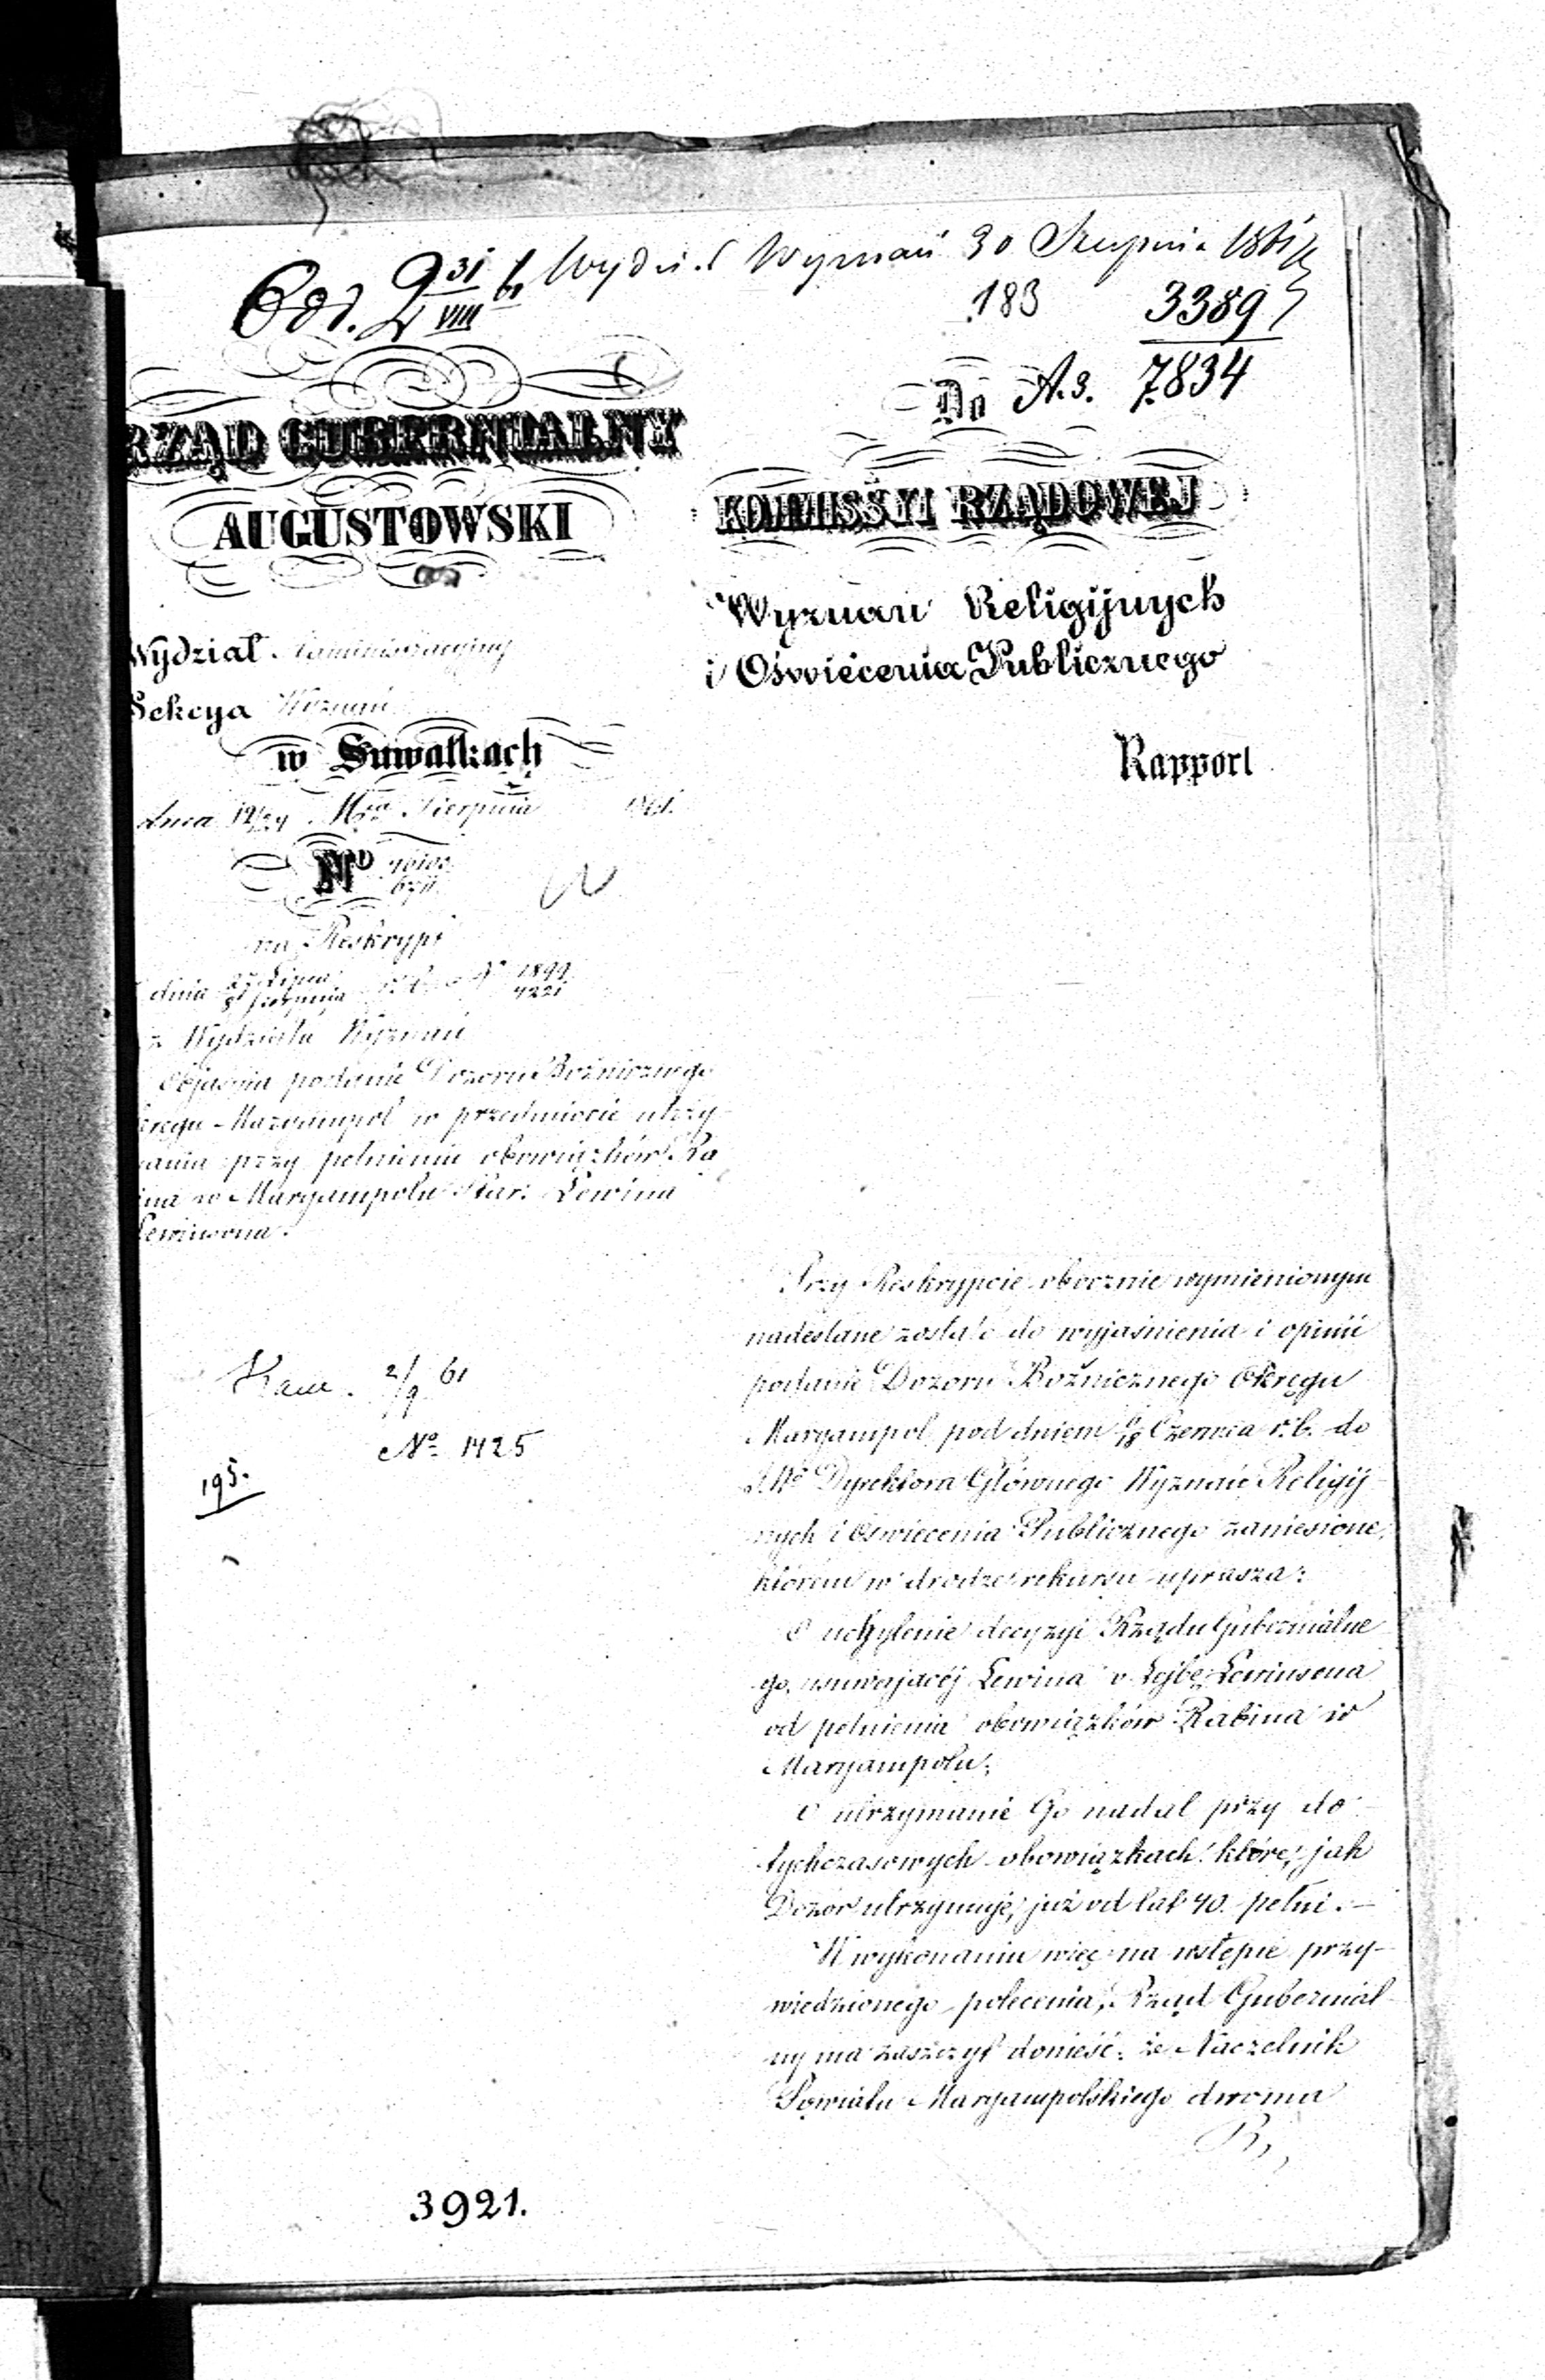 Odd. 2 31/VIII 61 Wydział Wyznań 30 Sierpnia 1861
183 3389
Do A.3. 7834
RZĄD GUBERNIALNY
AUGUSTOWSKI
Wydział Administracyjny
Sekcya Wyznań
w Suwałkach
dnia 12/24 Mca Sierpnia 1861.
No
na Reskrypt
dnia 27 Lipca / 8 Sierpnia No 1899 / 4221
z Wydziału Wyznań
Objaśnia podanie Dozoru Bożniczego
kręgu Maryampol w przedmiocie utrzy-
mania przy pełnieniu obowiązków Ra
ina w Maryampolu Star: Lewina
Lewinsona.
KOMMISSYI RZĄDOWEJ
Wyznań Religijnych
i Oświécenia Publicznego
Rapport
2/9 61
No 1425
195.
Przy Reskrypcie obocznie wymienionym
nadesłane zostało do wyjaśnienia i opinii
podanie Dozoru Bożnicznego Okręgu
Maryampol pod dniem 6/18 Czerwca r.b. do
J.W. Dyrektora Głównego Wyznań Religij
nych i Oświecenia Publicznego zaniesione,
którem w drodze rekursu uprasza:
O uchylenie decyzyi Rządu Gubernialne
go, usuwającéj Lewina v. Lejbę Lewinsona
od pełnienia obowiązków Rabina w
Maryampolu;
O utrzymanie Go nadal przy do
tychczasowych obowiązkach, które, jak
Dozór utrzymuje, już od lat 40. pełni.—
W wykonaniu więc na wstępie przy-
wiedzionego polecenia, Rząd Gubernial
ny ma zaszczyt donieść: że Naczelnik
Powiatu Maryampolskiego dwoma
3921.